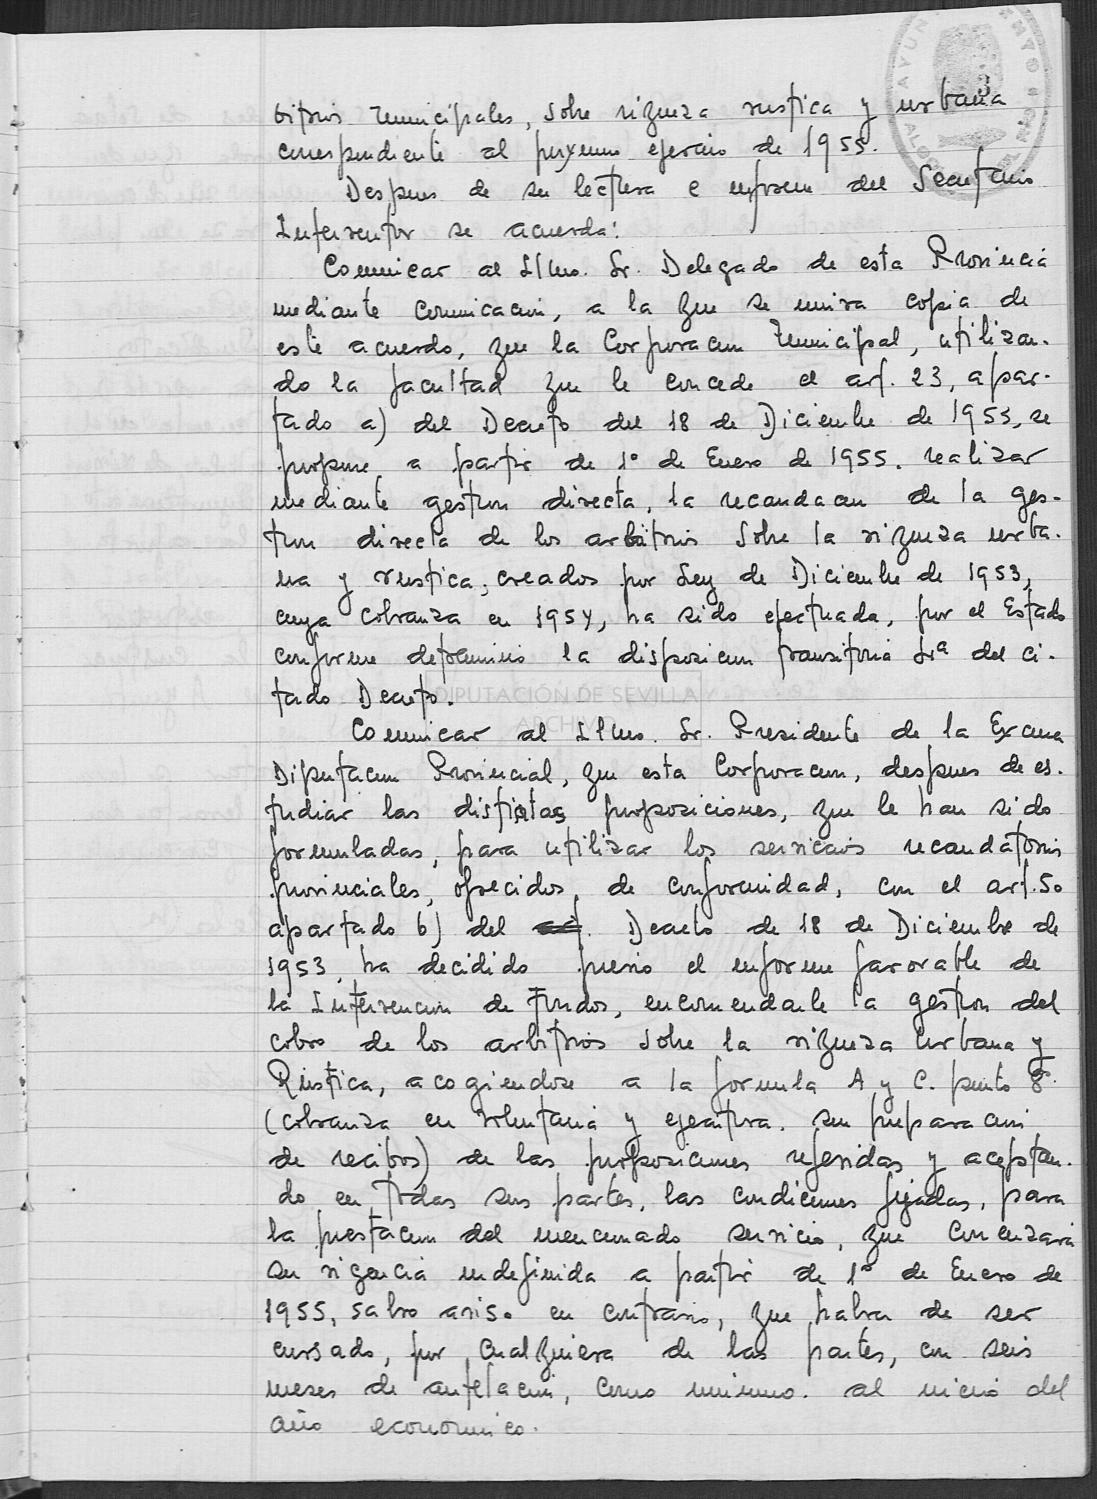 bitrios Municipales, sobre riqueza rustica y urbana
correspondiente al proximo ejercicio de 1955.
Despues de su lectura e informe del Secretario
Interventor se acuerda:
Comunicar al Iltmo. Sr. Delegado de esta Provincia
mediante comunicacion, a la que se unira copia de
este acuerdo, que la Corporacion Municipal, utilizan-
do la facultad que le concede el art. 23, apar-
tado a) del Decreto del 18 de Diciembre de 1953, se
propone a partir de 1º de Enero de 1955. realizar
mediante gestion directa, la recaudacion de la ges-
tion directa de los arbitrios sobre la riqueza urba-
na y rustica, creados por Ley de Diciembre de 1953,
cuya cobranza en 1954, ha sido efectuada, por el Estado
conforme determinio la disposicion transitoria del ci-
tado Decreto.
DIPUTACIÓN DE SEVILLA
ARCHIVO
Comunicar al Iltmo. Sr. Presidente de la Excma
Diputacion Provincial, que esta Corporacion, despues de es-
tudiar las distintas proposiciones, que le han sido
formuladas, para utilizar los servicios recaudatorios
provinciales, ofrecidos, de conformidad, con el art. 50
apartado b) del Decreto de 18 de Diciembre de
1953, ha decidido previo el informe favorable de
la Intervencion de Fondos, encomendarle la gestion del
cobro de los arbitrios sobre la riqueza Urbana y
Rustica, acogiendose a la formula A y C. punto 8º
(cobranza en voluntaria y ejecutiva. sin preparacion
de recibos) de las proposiciones referidas y aceptan-
do en todas sus partes, las condiciones fijadas, para
la prestacion del mencionado servicio, que comenzara
su vigencia indefinida a partir de 1º de Enero de
1955, salvo aviso en contrario, que habra de ser
cursado, por cualquiera de las partes, con seis
meses de antelacion, como minimo. al inicio del
año economico.